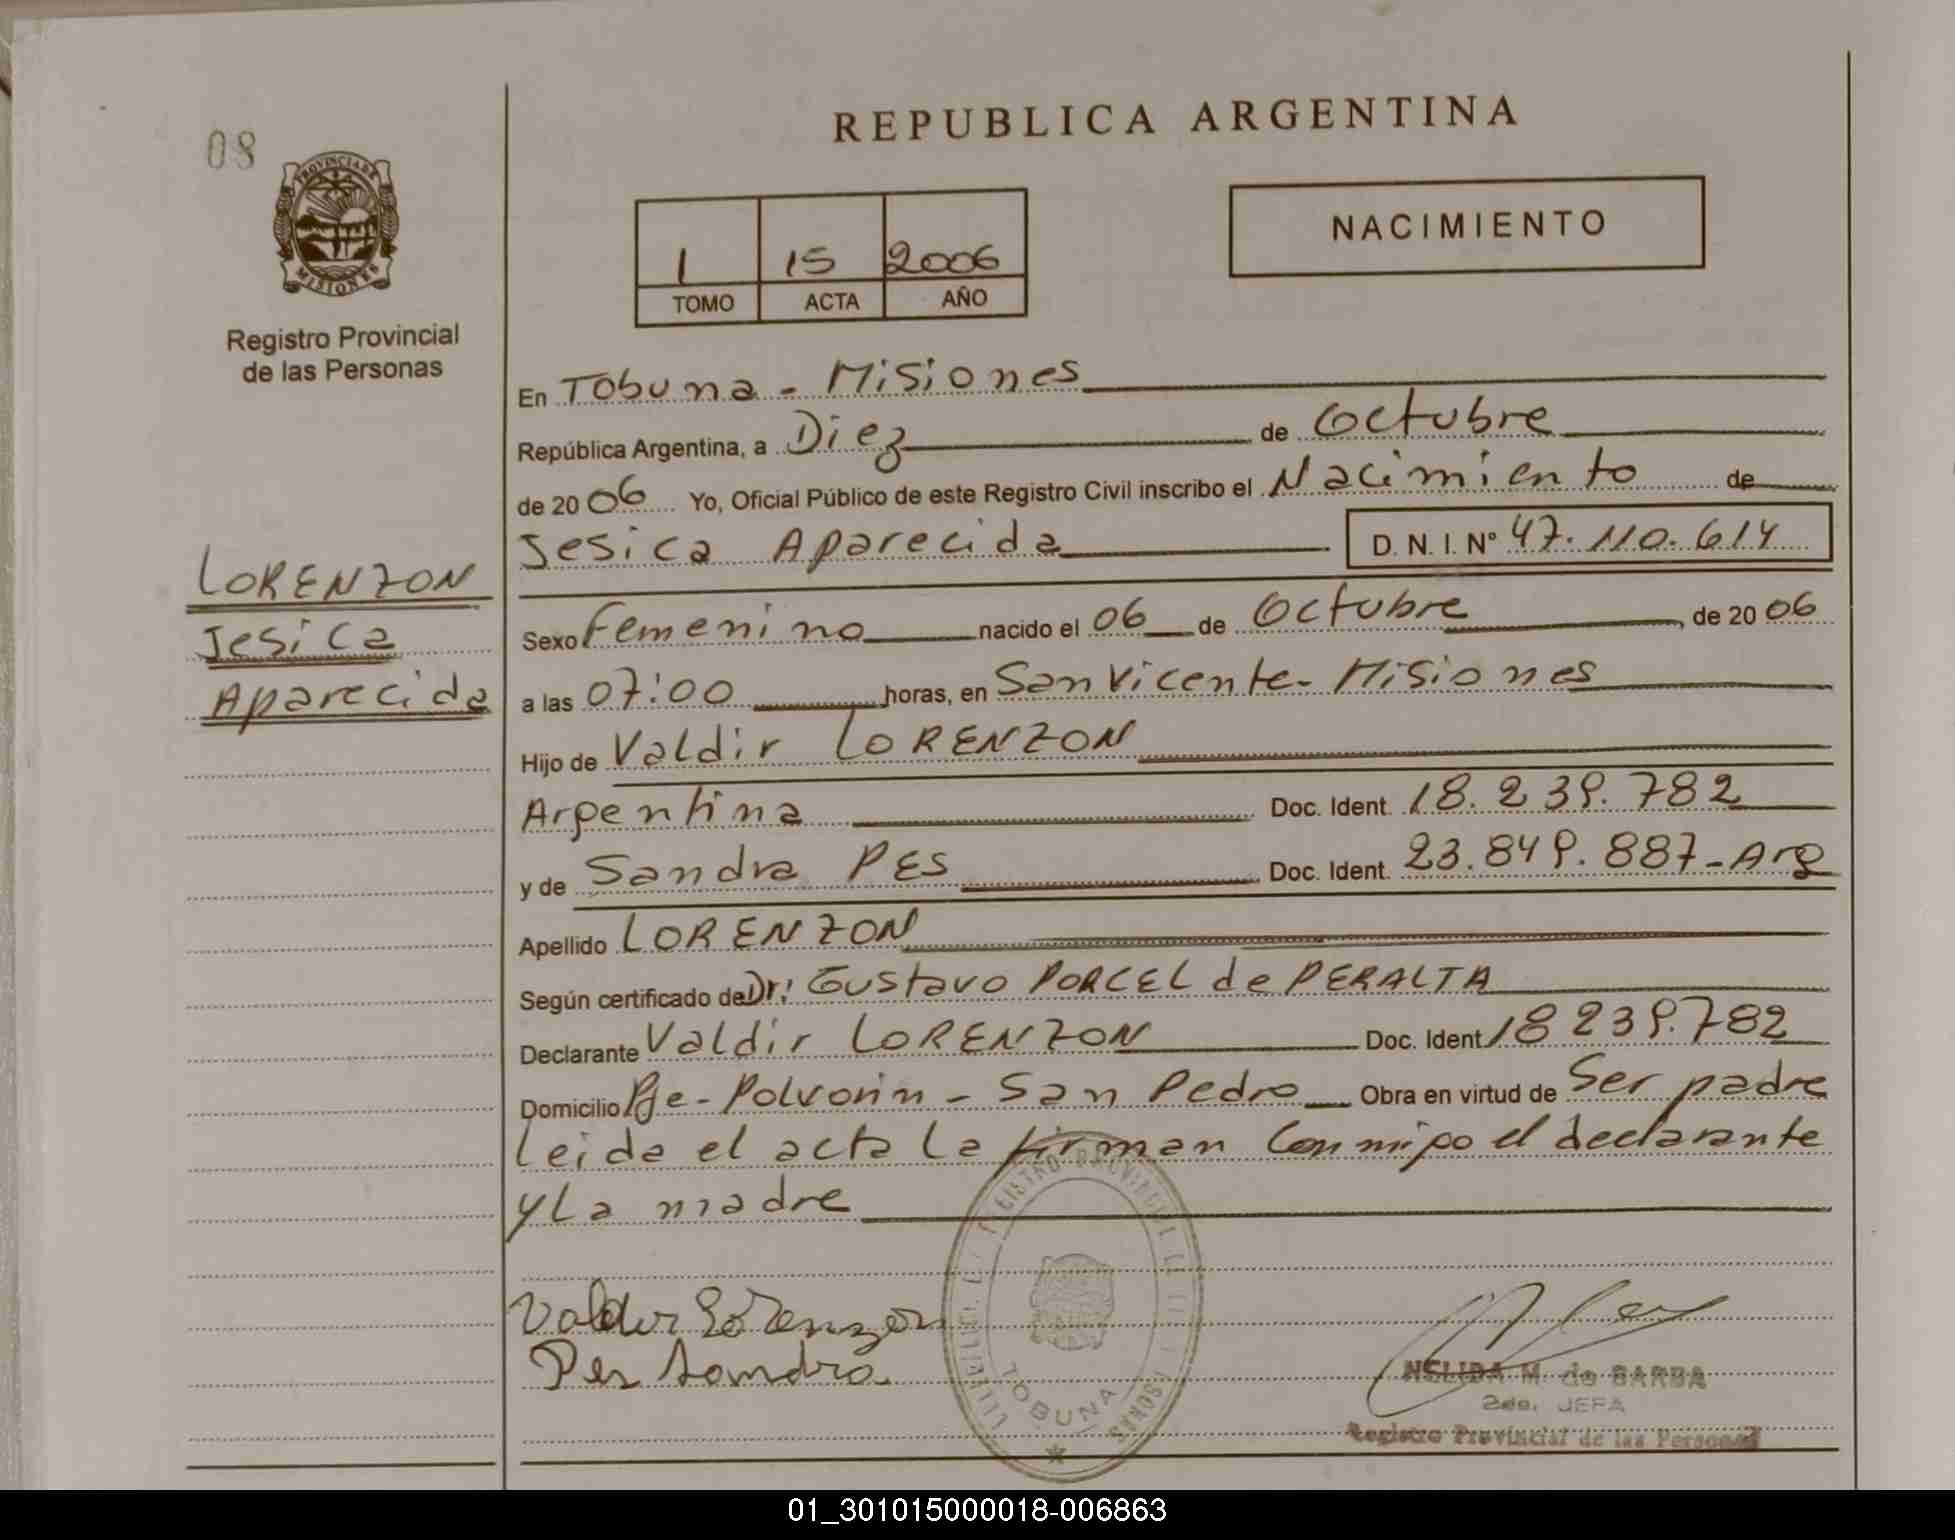 08
PROVINCIA DE
MISIONES
Registro Provincial
de las Personas
LORENZON
Jesica
Aparecida
REPUBLICA ARGENTINA
1 15 2006
TOMO ACTA AÑO
NACIMIENTO
En Tobuna - Misiones
República Argentina, a Diez de Octubre
de 2006 Yo, Oficial Público de este Registro Civil inscribo el Nacimiento de
Jesica Aparecida D. N. I. Nº 47.110.614
Sexo Femenino nacido el 06 de Octubre, de 2006
a las 07:00 horas, en San Vicente - Misiones
Hijo de Valdir LORENZON
Argentina Doc. Ident. 18.239.782
y de Sandra PES Doc. Ident. 23.849.887 - Arg
Apellido LORENZON
Según certificado de Dr: Gustavo PORCEL de PERALTA
Declarante Valdir LORENZON Doc. Ident 18239.782
Domicilio Pje - Polvorin - San Pedro Obra en virtud de Ser padre
leida el acta La firman Conmigo el declarante
y La madre
Valdir Lorenzon
Pes Sandra
TOBUNA
NELIDA M. de BARBA
2da. JEFA
Registro Provincial de las Personas
01_301015000018-006863